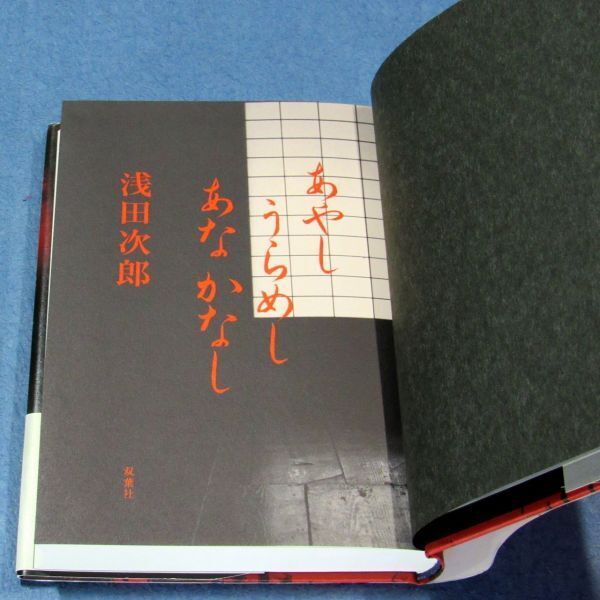 あやし
うらめし
あな かなし
浅田次郎
双葉社